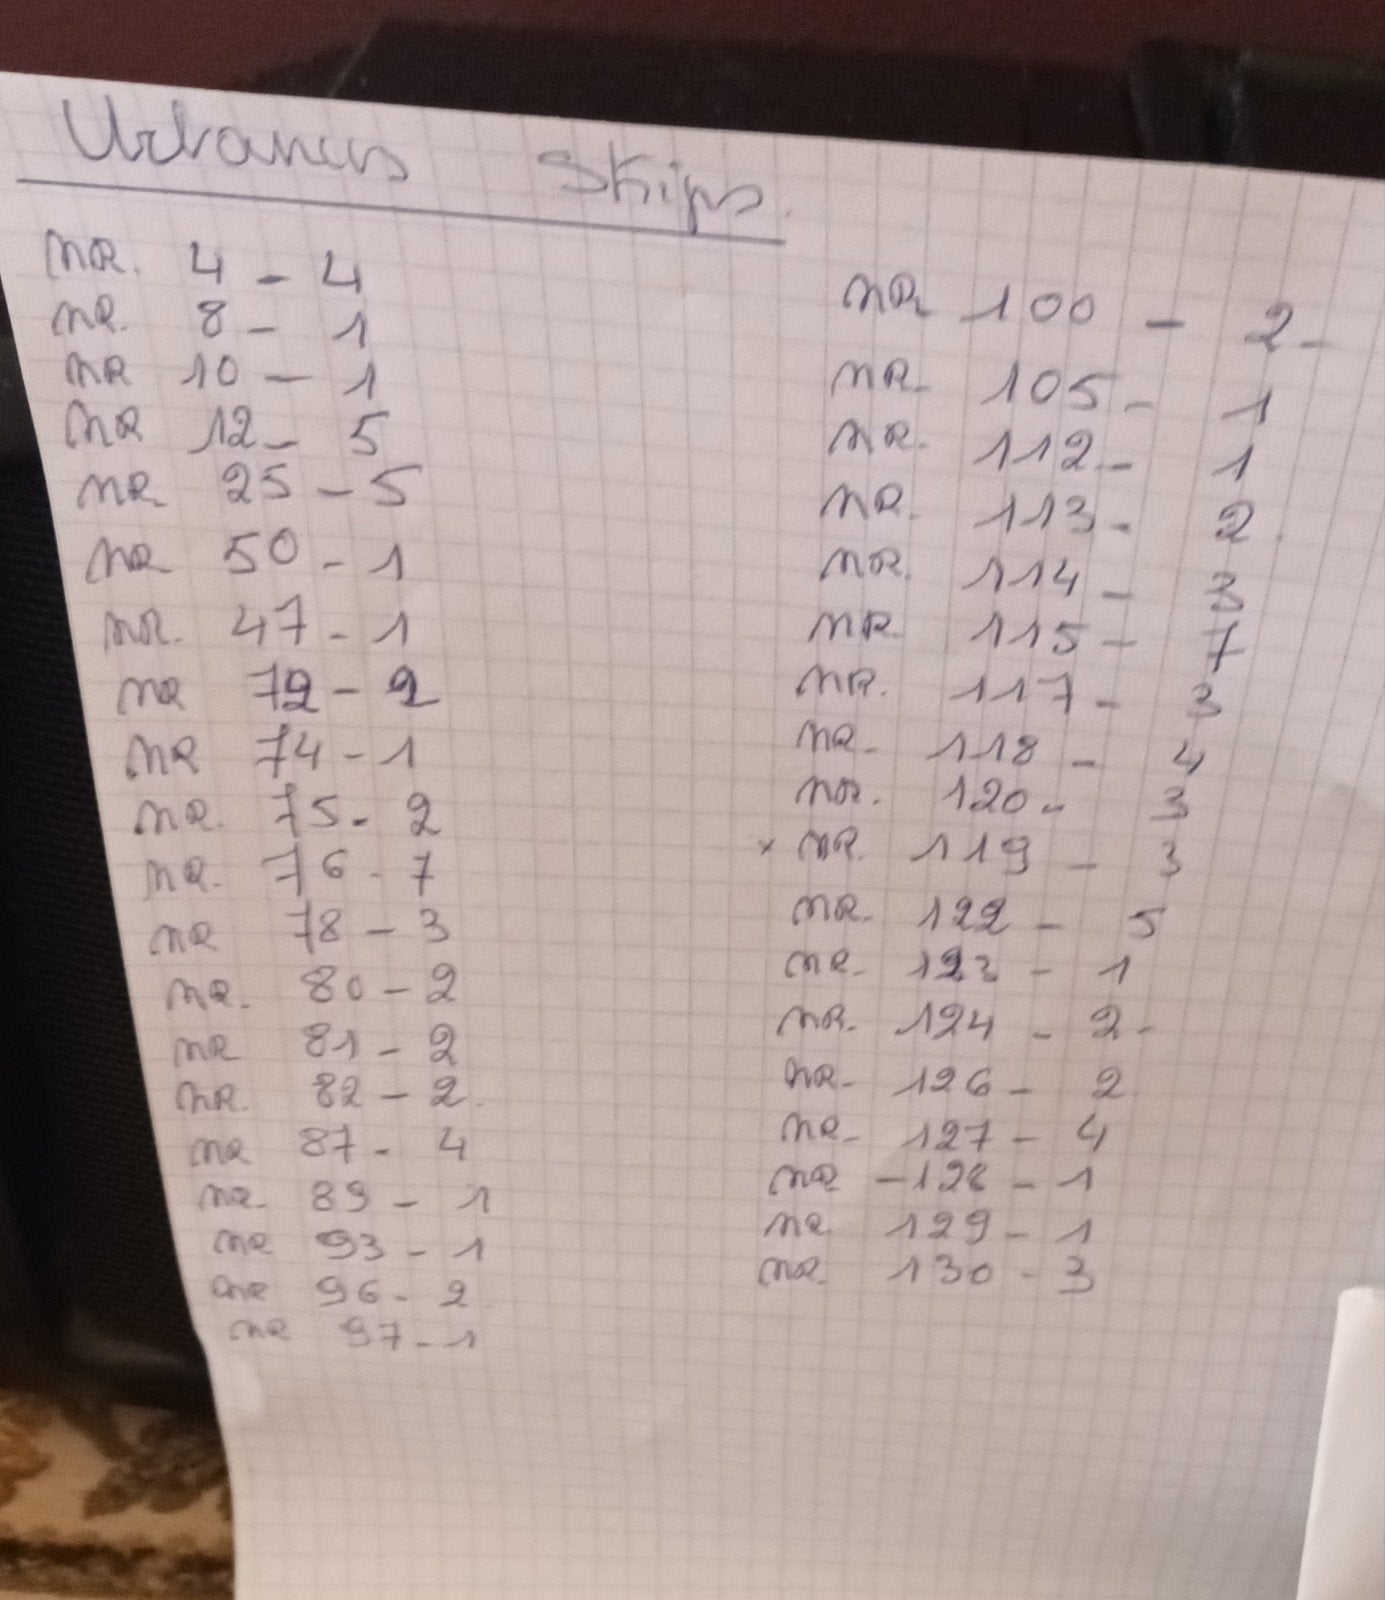 Urbanus Skips.
NR. 4 - 4
NR. 8 - 1
NR 10 - 1
NR 12 - 5
NR 25 - 5
NR 50 - 1
NR. 47 - 1
NR 72 - 2
NR 74 - 1
NR. 75 - 2
NR. 76 - 7
NR 78 - 3
NR. 80 - 2
NR 81 - 2
NR. 82 - 2.
NR 87 - 4
NR. 89 - 1
NR 93 - 1
NR 96 - 2
NR 97 - 1
NR 100 - 2-
NR. 105 - 1
NR. 112 - 1
NR. 113 - 2.
NR. 114 - 3
NR 115 - 7
NR. 117 - 3
NR- 118 - 4
NR. 120 - 3
x NR. 119 - 3
NR. 122 - 5
NR- 123 - 1
NR. 124 - 2-
NR- 126 - 2
NR- 127 - 4
NR -128 - 1
NR 129 - 1
NR. 130 - 3